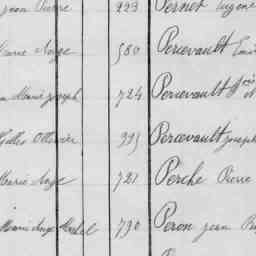 Jean Pierre 223 Pernot Eugène
Marie Ange 580 Percevault Emi
Marie Joseph 724 Percevault
Gilles Ollivier 995 Percevault Joseph
Marie Ange 721 Perche Pierre
Marie Ange Michel 790 Peron Jean